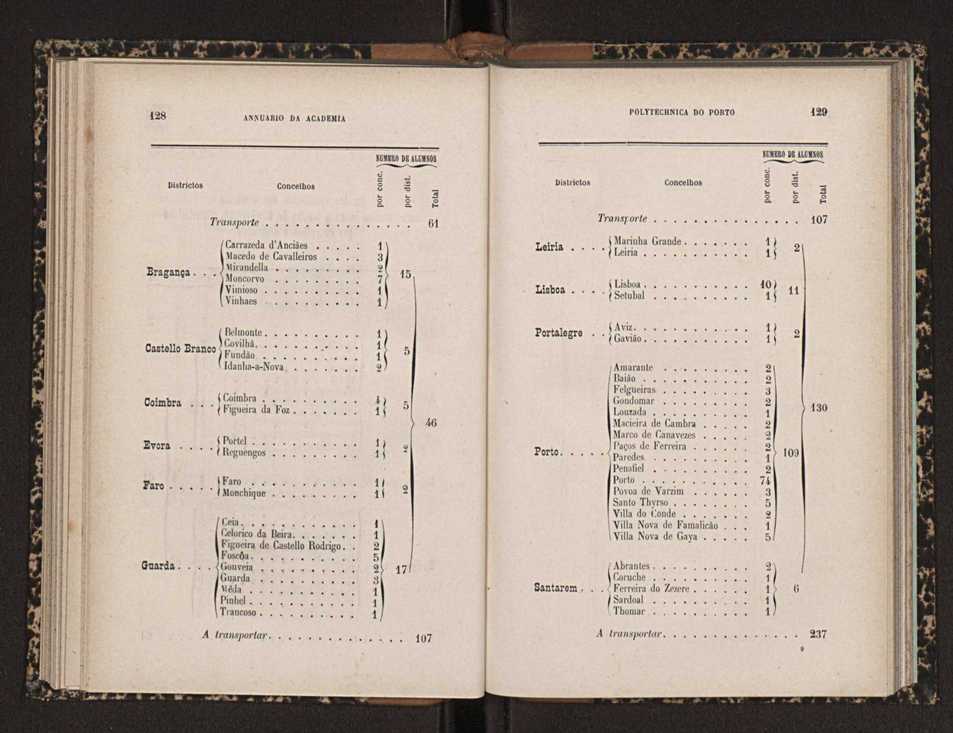 128
ANNUARIO DA ACADEMIA
NUMERO DE ALUMNOS
Districtos Concelhos por conc. por dist. Total
Transporte . . . . . . . . . . . . . . . 61
Carrazeda d'Anciães . . . . . 1
Macedo de Cavalleiros . . . . 3
Bragança . . . Mirandella . . . . . . . . . 2 15
Moncorvo . . . . . . . . . 7
Vimioso . . . . . . . . . . 1
Vinhaes . . . . . . . . . . 1
Belmonte . . . . . . . . . . 1
Castello Branco Covilhã . . . . . . . . . . . 1 5
Fundão . . . . . . . . . . 1
Idanha-a-Nova . . . . . . . . 2
Coimbra . . . Coimbra . . . . . . . . . . 4 5
Figueira da Foz . . . . . . . . 1
46
Evora . . . . Portel . . . . . . . . . . . 1 2
Reguengos . . . . . . . . . . 1
Faro . . . . . Faro . . . . . . . . . . . 1 2
Monchique . . . . . . . . . 1
Ceia . . . . . . . . . . . . 1
Celorico da Beira . . . . . . . 1
Figueira de Castello Rodrigo . . 2
Foscôa . . . . . . . . . . . 5
Guarda . . . . Gouveia . . . . . . . . . . 2 17
Guarda . . . . . . . . . . 3
Mêda . . . . . . . . . . . 1
Pinhel . . . . . . . . . . . 1
Trancoso . . . . . . . . . . 1
A transportar . . . . . . . . . . . . . 107
POLYTECHNICA DO PORTO 129
NUMERO DE ALUMNOS
Districtos Concelhos por conc. por dist. Total
Transporte . . . . . . . . . . . . . . . 107
Leiria . . . . Marinha Grande . . . . . . . 1 2
Leiria . . . . . . . . . . . 1
Lisboa . . . . Lisboa . . . . . . . . . . . 10 11
Setubal . . . . . . . . . . 1
Portalegre . . Aviz . . . . . . . . . . . . 1 2
Gavião . . . . . . . . . . . 1
Amarante . . . . . . . . . 2
Baião . . . . . . . . . . . 2
Felgueiras . . . . . . . . . 3
Gondomar . . . . . . . . . 2
Louzada . . . . . . . . . . 1
130
Macieira de Cambra . . . . . 2
Marco de Canavezes . . . . . 2
Paços de Ferreira . . . . . . 2
Porto . . . . . Paredes . . . . . . . . . . 1 109
Penafiel . . . . . . . . . . 2
Porto . . . . . . . . . . . 74
Povoa de Varzim . . . . . . 3
Santo Thyrso . . . . . . . . 5
Villa do Conde . . . . . . . 2
Villa Nova de Famalicão . . . 1
Villa Nova de Gaya . . . . . 5
Abrantes . . . . . . . . . . 2
Coruche . . . . . . . . . . 1
Santarem . . . Ferreira do Zezere . . . . . . 1 6
Sardoal . . . . . . . . . . 1
Thomar . . . . . . . . . . 1
A transportar . . . . . . . . . . . . . . . 237
9